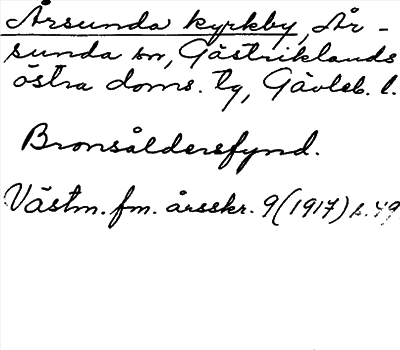 Årsunda kyrkby, År-
sunda sn, Gästriklands
östra doms. tg, Gävleb. l.
Bronsåldersfynd.
Västm. fm. årsskr. 9 (1917) s. 49